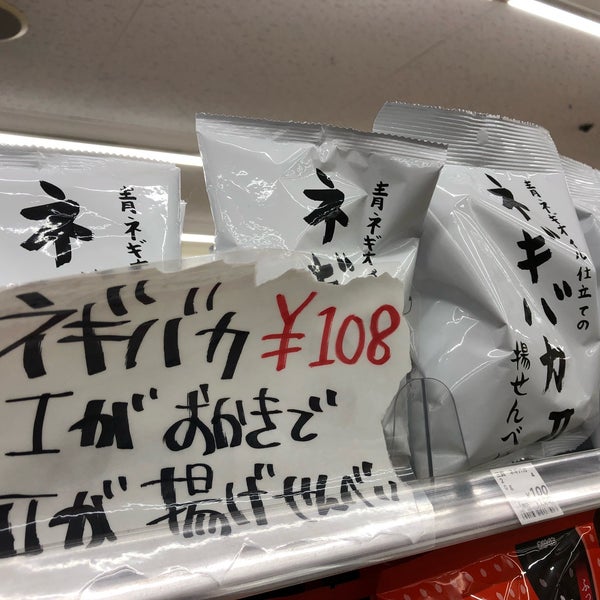 ネギバカ ¥108
Iが おかきで
IIが 揚げせんべい
青ネギオ
ネギ
青ネギ
ネ
青ネギオイル仕立ての
ネギバカII
揚せんべ
¥100